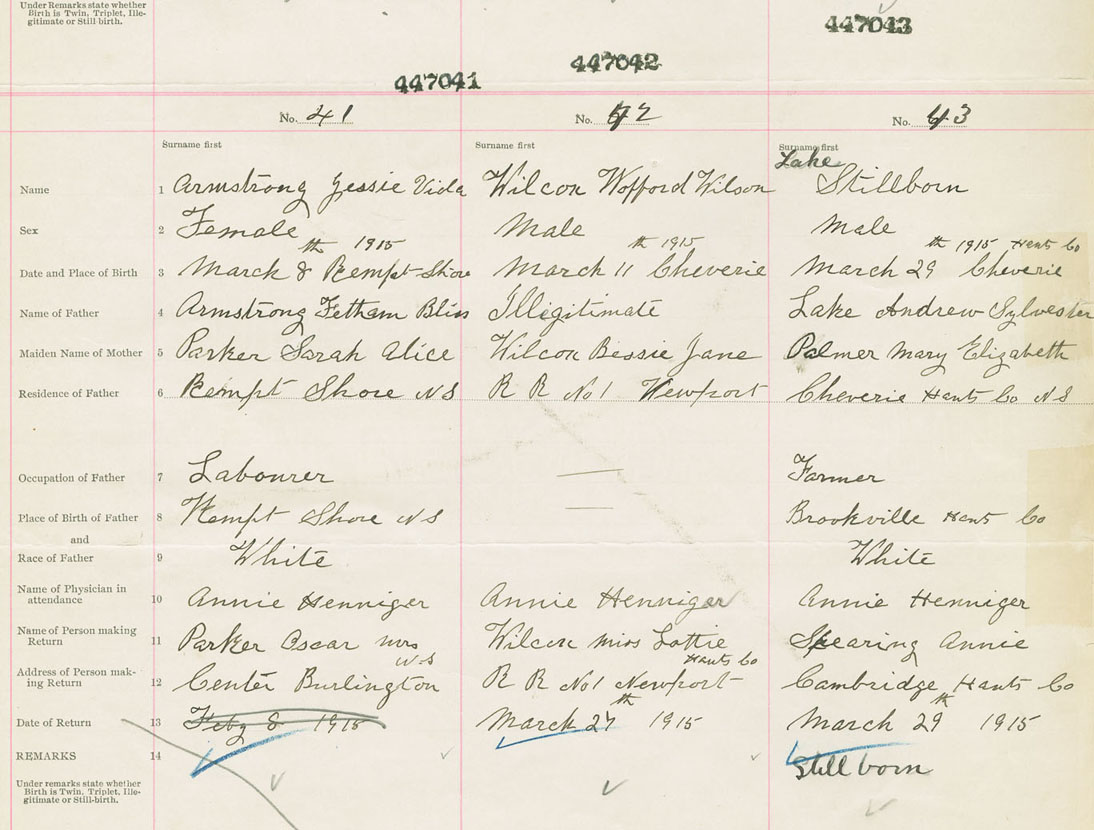 Under Remarks state whether
Birth is Twin, Triplet, Ille-
gitimate or Still-birth.
447041 447042 447043
No. 41 No. 42 No. 43
Surname first Surname first Surname first
Lake
Name 1 Armstrong Jessie Viola Wilcox Wofford Wilson Stillborn
Sex 2 Female Male Male
th 1915 th 1915 th 1915 Hants Co
Date and Place of Birth 3 March 8 Kempt Shore March 11 Cheverie March 29 Cheverie
Name of Father 4 Armstrong Feltham Bliss Illigitimate Lake Andrew Sylvester
Maiden Name of Mother 5 Parker Sarah Alice Wilcox Bessie Jane Palmer Mary Elizabeth
Residence of Father 6 Kempt Shore N S R R No 1 Newport Cheverie Hants Co N S
Occupation of Father 7 Labourer — Farmer
Place of Birth of Father 8 Kempt Shore N S — Brookville Hants Co
and
Race of Father 9 White White
Name of Physician in
attendance 10 Annie Henniger Annie Henniger Annie Henniger
Name of Person making
Return 11 Parker Oscar Mrs Wilcox Miss Lottie Spearing Annie
N S Hants Co
Address of Person mak-
ing Return 12 Center Burlington R R No 1 Newport Cambridge Hants Co
th th
Date of Return 13 Feby 8 1915 March 27 1915 March 29 1915
REMARKS 14 Still born
Under remarks state whether
Birth is Twin, Triplet, Ille-
gitimate or Still-birth.